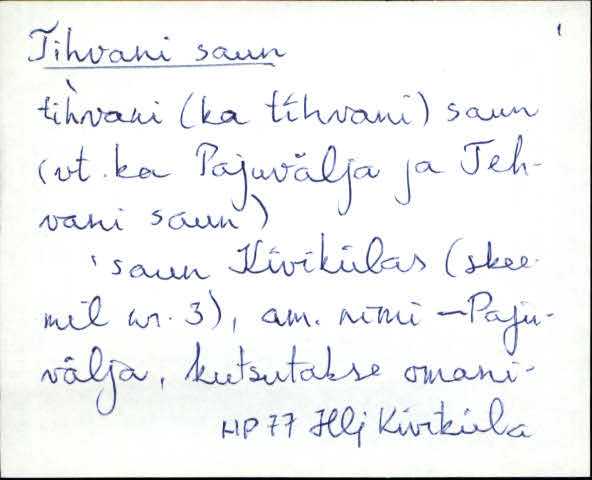 1
Tihvani saun
tìhvani (ka tíhvani) saun
(vt. ka Pajuvälja ja Teh-
vani saun)
'saun Kivikülas (skee-
mil nr. 3), am. nimi - Paju-
välja, kutsutakse omani-
HP 77 Hlj Kiviküla